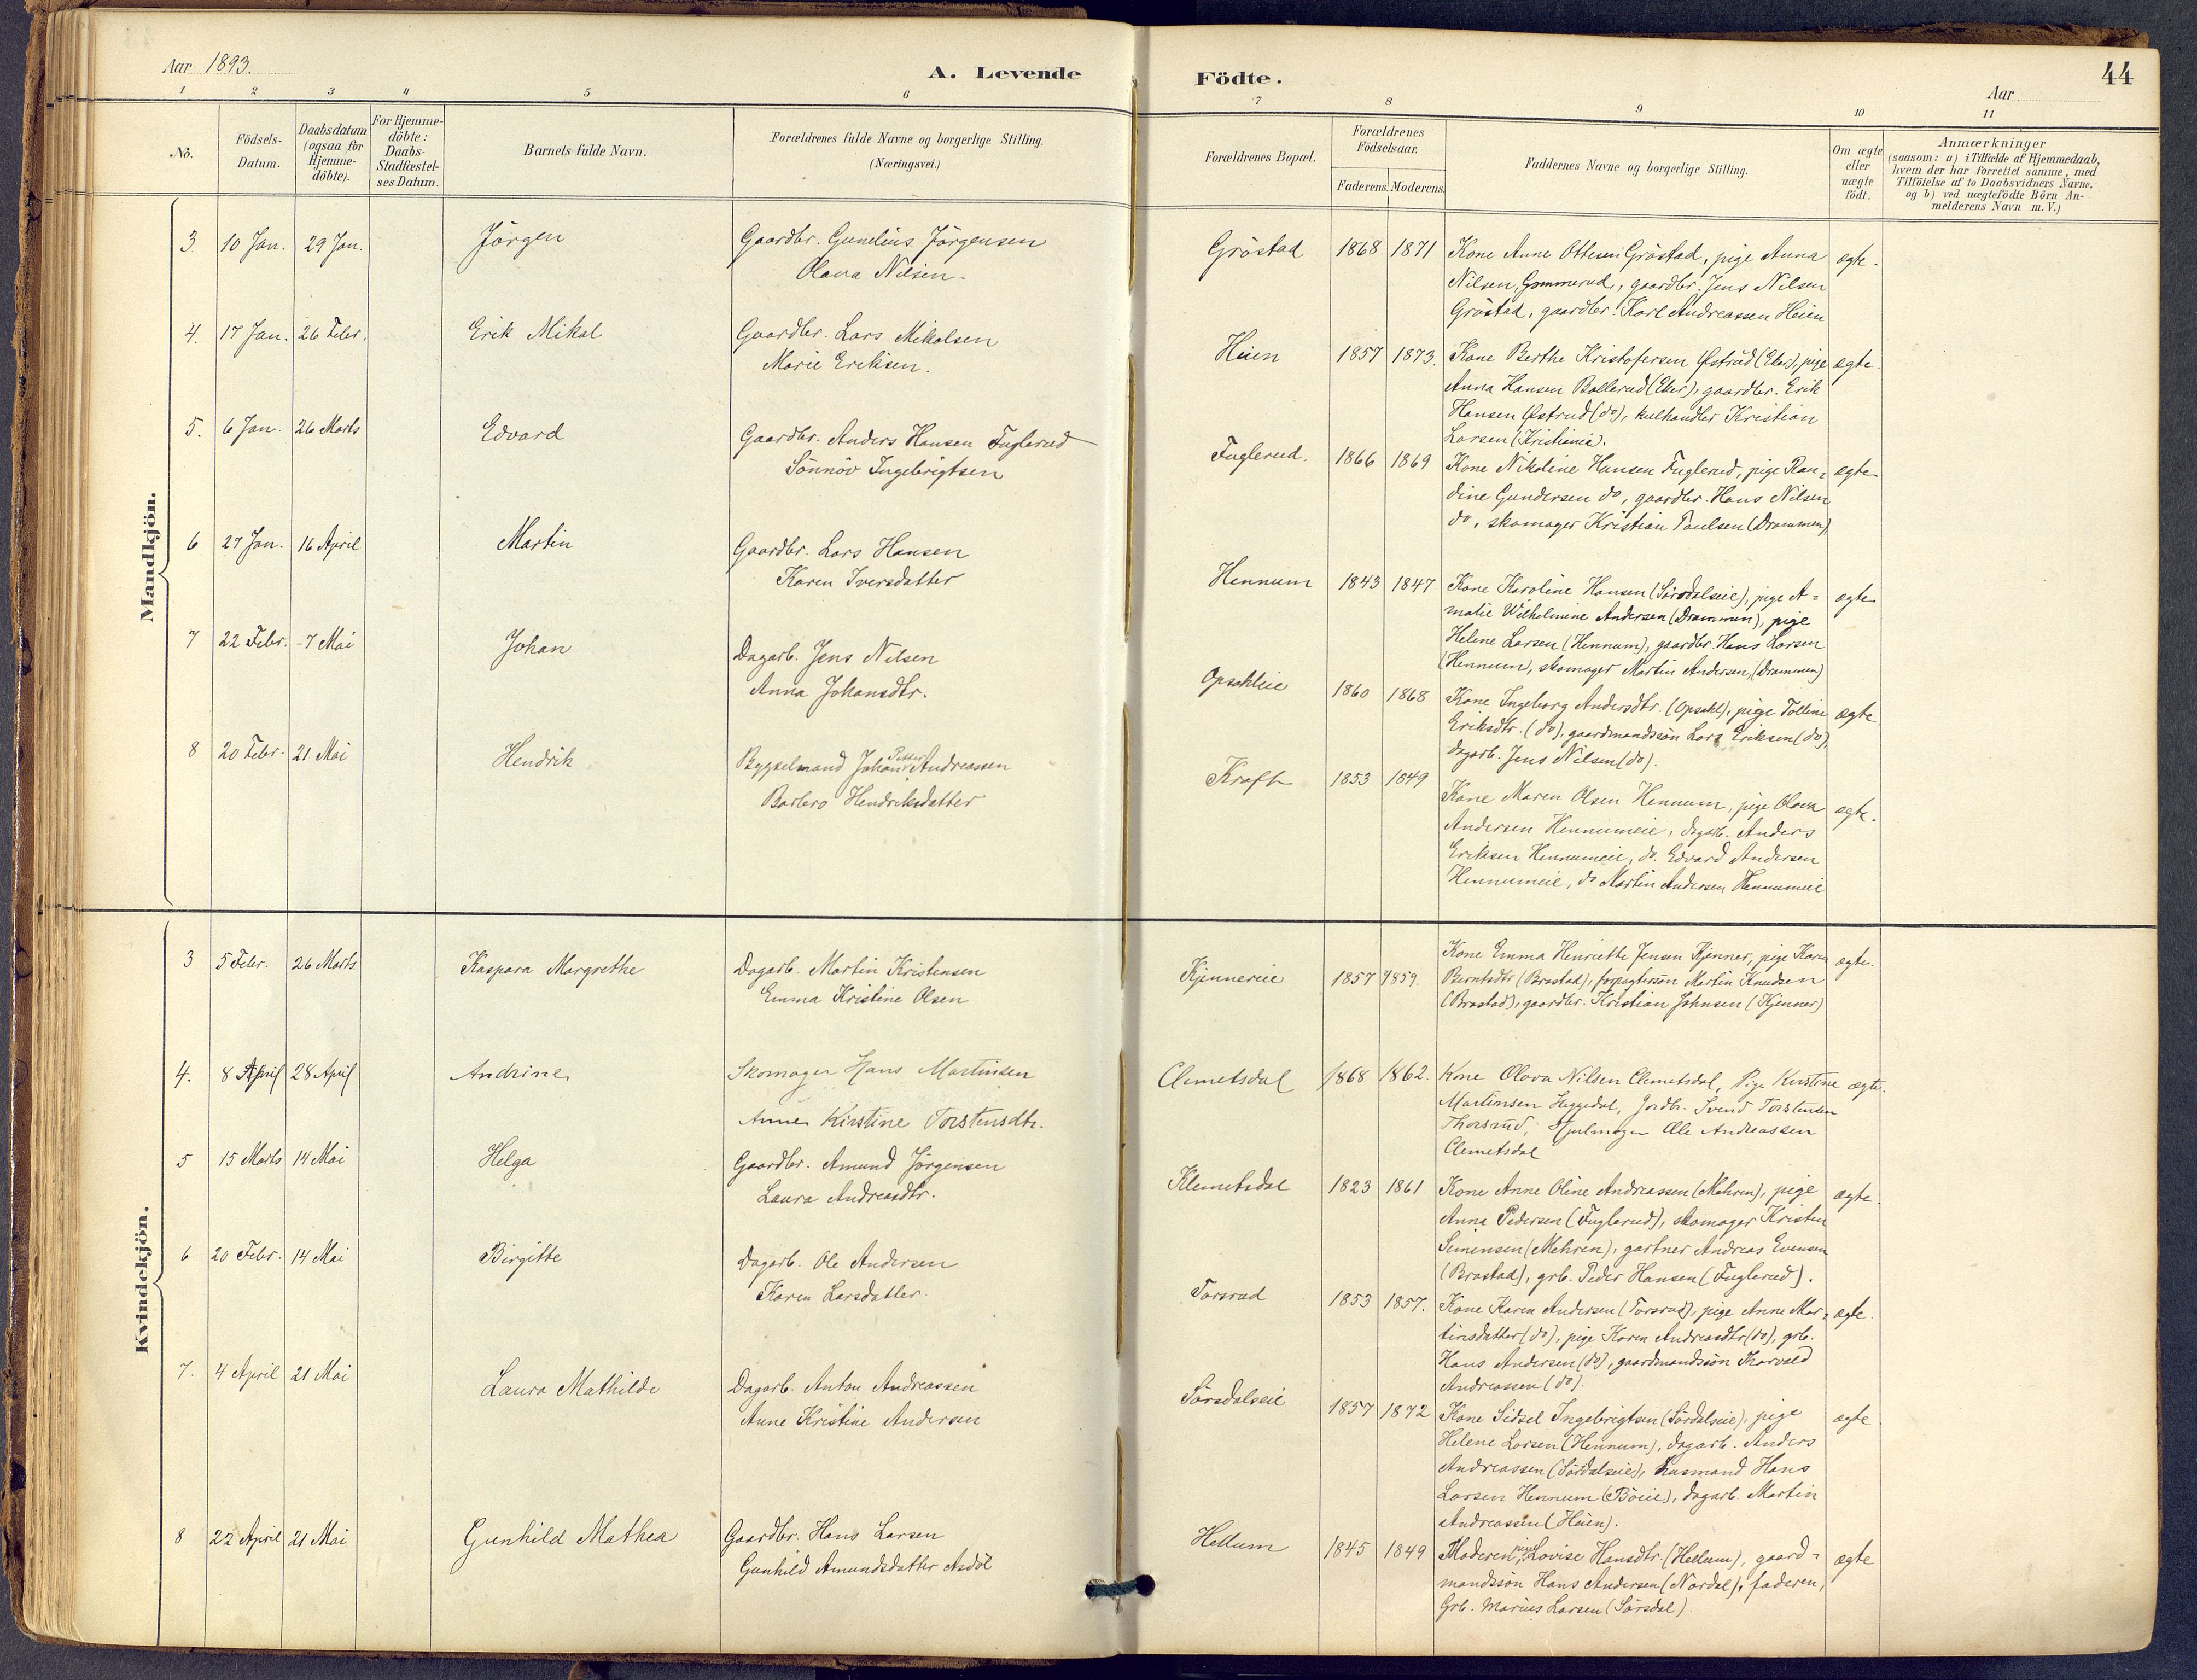 Aar 1893.
A. Levende Födte.
44
Aar
1 2 3 4 5 6 7 8 9 10 11
No.
Födsels-Datum.
Daabsdatum (ogsaa for Hjemme-döbte).
For Hjemme-döbte: Daabs-Stadfæstel-ses Datum.
Barnets fulde Navn.
Forældrenes fulde Navne og borgerlige Stilling.
(Næringsvei.)
Forældrenes Bopæl.
Forældrenes Födselsaar.
Faderens. Moderens.
Faddernes Navne og borgerlige Stilling.
Om ægte eller uægte födt.
Anmærkninger
(saasom: a) i Tilfælde af Hjemmedaab,
hvem der har forrettet samme, med
Tilföielse af to Daabsvidners Navne,
og b) ved uægtefödte Börn An-
melderens Navn m. V.)
Mandkjön.
3. 10 Jan. 29 Jan. Jörgen
Gaardbr. Gunelius Jörgensen
Olava Nilsen.
Gröstad 1868 1871
Kone Anne Ottesen Gröstad, pige Anna
Nilsen, Gommerud, gaardbr. Jens Nilsen
Gröstad, gaardbr. Karl Andreassen Heien
ægte.
4. 17 Jan. 26 Febr. Erik Mikal
Gaardbr. Lars Mikalsen
Marie Eriksen.
Heien 1857 1873.
Kone Berthe Kristofersen Østrud (Eker), pige
Anna Hansen Bollerud (Eker), gaardbr. Erik
Hansen Østrud (do), kulhandler Kristian
Larsen (Kristiania).
ægte.
5. 6 Jan. 26 Marts Edvard
Gaardbr. Anders Hansen Fuglerud
Sönnöv Ingebrigtsen
Fuglerud. 1866 1869
Kone Nikoline Hansen Fuglerud, pige Ran=
dine Gundersen do, gaardbr. Hans Nilsen
do, skomager Kristian Paulsen (Drammen)
ægte
6 27 Jan. 16 April Martin
Gaardbr. Lars Hansen
Karen Iversdatter
Hennum 1843 1847
Kone Karoline Hansen (Sörsdalseie), pige A=
malie Wilhelmine Andersen (Drammen), pige
Helene Larsen (Hennum), gaardbr. Hans Larsen
(Hennum), skomager Martin Andersen, (Drammen)
ægte
7 22 Febr. 7 Mai Johan
Dagarb. Jens Nilsen
Anna Johansdtr.
Opsahleie 1860 1868
Kone Ingeborg Andersdtr. (Opsahl), pige Tolline
Eriksdtr. (do), gaardmandssön Lars Eriksen (do),
dagarb. Jens Nilsen (do).
ægte
8 20 Febr. 21 Mai Hendrik
Bygselmand Johan Petter Andreassen
Barbro Hendriksdatter
Kraft 1853 1849
Kone Maren Olsen Hennum, pige Olava
Andersen Hennumeie, dagarb. Anders
Eriksen Hennumeie, do. Edvard Andersen
Hennumeie, do Martin Andersen Hennumeie
ægte.
Kvindekjön.
3 5 Febr. 26 Marts Kaspara Margrethe
Dagarb. Martin Kristensen
Emma Kristine Olsen
Kjennereie 1857 1859.
Kone Emma Henriette Jensen Kjenner, pige Karen
Berntsdtr (Brastad), forpagtersön Martin Knudsen
(Brastad), gaardbr. Kristian Johnsen (Kjenner)
ægte.
4. 8 April 28 April Andrine
Skomager Hans Martinsen
Anne Kirstine Torstensdtr.
Clemetsdal 1868 1862.
Kone Olava Nilsen Clemetsdal, Pige Kirstine
Martinsen Heggedal, Grdbr. Svend Torstensen
Thorsrud, Hjulmager Ole Andreassen
Clemetsdal
ægte.
5 15 Marts 14 Mai Helga
Gaardbr. Amund Jörgensen
Laura Andreasdtr.
Klemetsdal 1823 1861
Kone Anne Oline Andreassen (Mehren), pige
Anna Pedersen (Fuglerud), skomager Kristen
Simensen (Mehren), gartner Andreas Evensen
(Brastad), grb. Peder Hansen (Fuglerud).
ægte.
6 20 Febr. 14 Mai Birgitte
Dagarb. Ole Andersen
Karen Larsdatter.
Torsrud 1853 1857.
Kone Karen Andersen (Torsrud), pige Anne Mar=
tinsdatter (do), pige Karen Andreasdtr (do), grb.
Hans Andersen (do), gaardmandssön Thorvald
Andreassen (do).
ægte.
7. 4 April 21 Mai Laura Mathilde
Dagarb. Anton Andreassen
Anne Kristine Andersen
Sörsdalseie 1857 1872
Kone Sidsel Ingebrigtsen (Sördalseie), pige
Helene Larsen (Hennum), dagarb. Anders
Andreassen (Sördalseie), husmand Hans
Larsen Hennum (Böeie), dagarb. Martin
Andreassen (Heien).
ægte
8 22 April 21 Mai Gunhild Mathea
Gaardbr. Hans Larsen
Gunhild Amundsdatter Asdöl
Hellum 1845 1849
Moderen, pige Lovise Hansdtr. (Hellum), gaard=
mandssön Hans Andersen (Nordal), faderen,
Grb. Marius Larsen (Sörsdal)
ægte